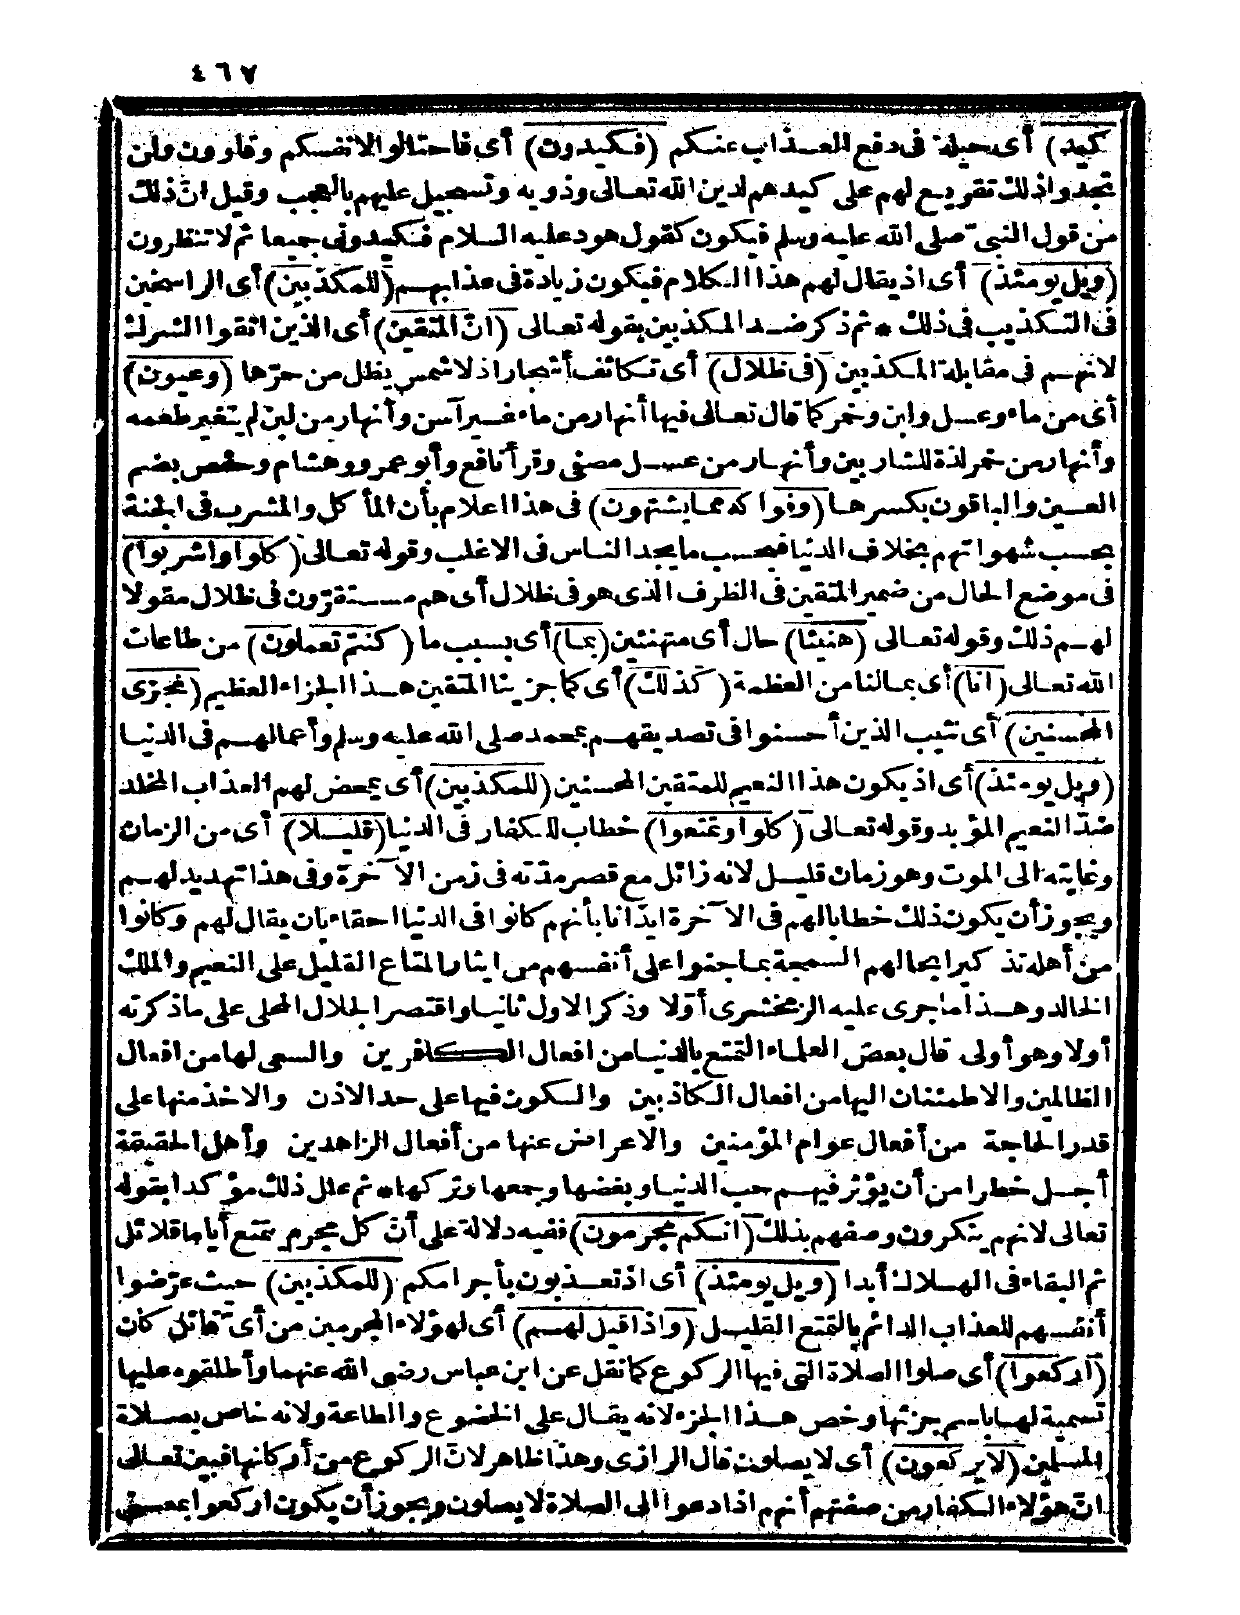 ٤٦٧
كيد) أى حيلة فى دفع العذاب عنكم (فكيدون) أى فاحتالوا لانفسكم وقاوون ولن
تجدوا ذلك تقريع لهم على كيدهم لدين الله تعالى وذويه وتسجيل عليهم بالعجب وقيل ان ذلك
من قول النبى صلى الله عليه وسلم فيكون كقول هود عليه السلام فكيدونى جميعا ثم لا تنظرون
(ويل يومئذ) أى اذ يقال لهم هذا الكلام فيكون زيادة فى عذابهم (للمكذبين) أى الراسخين
فى التكذيب فى ذلك * ثم ذكر ضد المكذبين بقوله تعالى (ان المتقين) أى الذين اتقوا الشرك
لانهم فى مقابلة المكذبين (فى ظلال) أى تكاثف أشجار اذ لا شمس يظل من حرّها (وعيون)
أى من ماء وعسل ولبن وخمر كما قال تعالى فيها أنهار من ماء غير آسن وأنهار من لبن لم يتغير طعمه
وأنهار من خمر لذة للشاربين وأنهار من عسل مصفى وقرأ نافع وأبو عمرو وهشام وحفص بضم
العين والباقون بكسرها (وفواكه مما يشتهون) فى هذا اعلام بأن المأكل والمشرب فى الجنة
بحسب شهواتهم بخلاف الدنيا فبحسب ما يجد الناس فى الاغلب وقوله تعالى (كلوا واشربوا)
فى موضع الحال من ضمير المتقين فى الظرف الذى هو فى ظلال أى هم مستقرّون فى ظلال مقولا
لهم ذلك وقوله تعالى (هنيئا) حال أى متهنئين (بما) أى بسبب ما (كنتم تعملون) من طاعات
الله تعالى (انا) أى بما لنا من العظمة (كذلك) أى كما جزينا المتقين هذا الجزاء العظيم (نجزى
المحسنين) أى نثيب الذين أحسنوا فى تصديقهم بمحمد صلى الله عليه وسلم وأعمالهم فى الدنيا
(ويل يومئذ) أى اذ يكون هذا النعيم للمتقين المحسنين (للمكذبين) أى يمحض لهم العذاب المخلد
ضدّ النعيم المؤبد وقوله تعالى (كلوا وتمتعوا) خطاب للكفار فى الدنيا (قليلا) أى من الزمان
وغايته الى الموت وهو زمان قليل لانه زائل مع قصر مدّته فى زمن الآخرة وفى هذا تهديد لهم
ويجوز أن يكون ذلك خطابا لهم فى الآخرة ايذانا بأنهم كانوا فى الدنيا احقاء بان يقال لهم وكانوا
من أهله تذكيرا بحالهم السمجة بما جنوا على أنفسهم من ايثار المتاع القليل على النعيم والملك
الخالد وهذا ما جرى عليه الزمخشرى أوّلا وذكر الاول ثانيا واقتصر الجلال المحلى على ما ذكرته
أولا وهو أولى قال بعض العلماء التمتع بالدنيا من افعال الكافرين والسعى لها من افعال
الظالمين والاطمئنان اليها من افعال الكاذبين والسكون فيها على حد الاذن والاخذ منها على
قدر الحاجة من أفعال عوام المؤمنين والاعراض عنها من أفعال الزاهدين وأهل الحقيقة
أجل خطرا من أن يؤثر فيهم حب الدنيا وبغضها وجمعها وتركها * ثم علل ذلك مؤكدا بقوله
تعالى لانهم ينكرون وصفهم بذلك (انكم مجرمون) ففيه دلالة على أنّ كل مجرم يتمتع أياما قلائل
ثم البقاء فى الهلاك أبدا (ويل يومئذ) أى اذ تعذبون بأجرامكم (للمكذبين) حيث عرّضوا
أنفسهم للعذاب الدائم بالتمتع القليل (واذا قيل لهم) أى لهؤلاء المجرمين من أىّ قائل كان
(اركعوا) أى صلوا الصلاة التى فيها الركوع كما نقل عن ابن عباس رضى الله عنهما وأطلقوه عليها
تسمية لها باسم جزئها وخص هذا الجزء لانه يقال على الخضوع والطاعة ولانه خاص بصلاة
المسلمين (لا يركعون) أى لا يصلون قال الرازى وهذا ظاهر لانّ الركوع من أركانها فبين تعالى
انّ هؤلاء الكفار من صفتهم أنهم اذا دعوا الى الصلاة لا يصلون ويجوز أن يكون اركعوا بمعنى